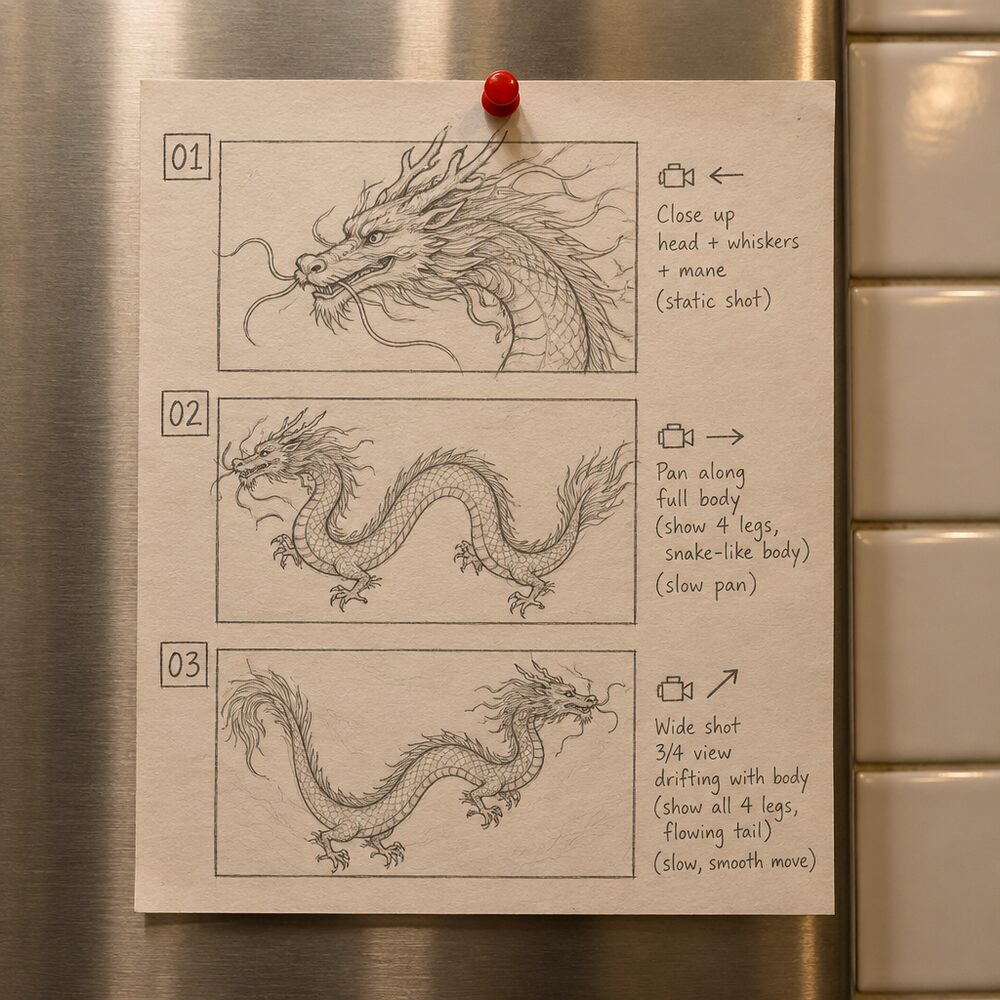 01
Close up
head + whiskers
+ mane
(static shot)
02
Pan along
full body
(show 4 legs,
snake-like body)
(slow pan)
03
Wide shot
3/4 view
drifting with body
(show all 4 legs,
flowing tail)
(slow, smooth move)